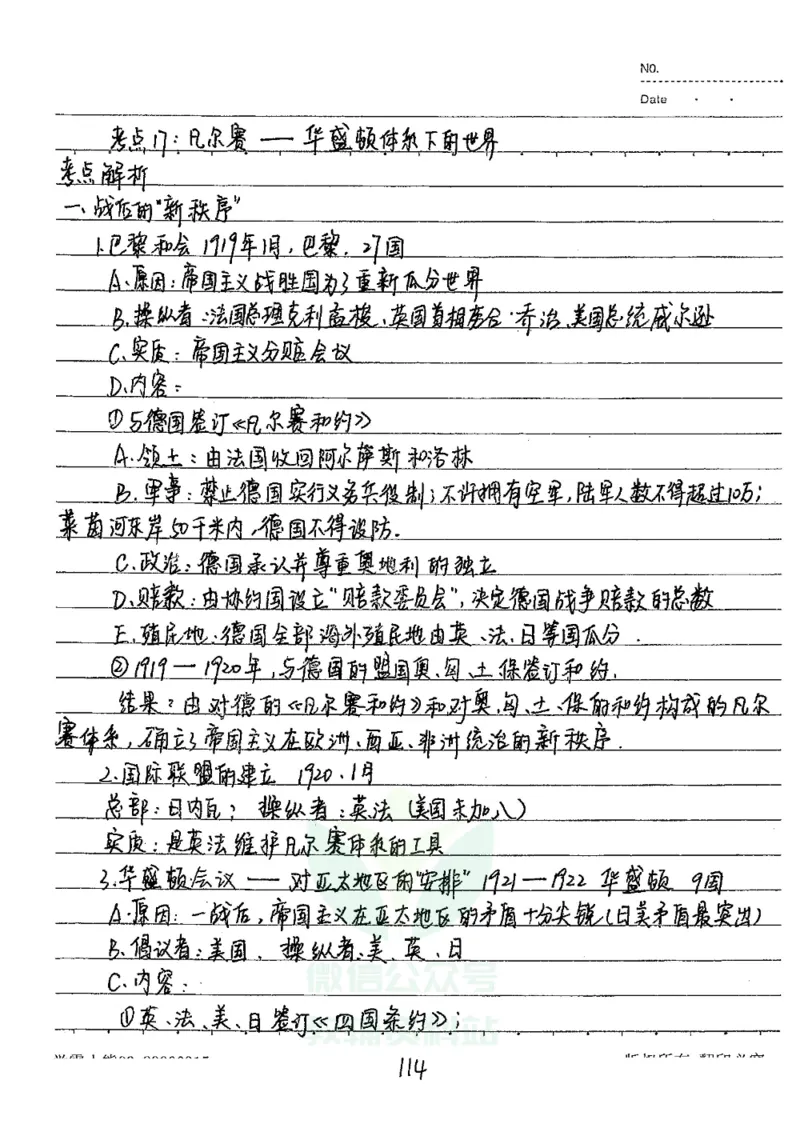 No.
Date
考点17：凡尔赛 — 华盛顿体系下的世界
考点解析
一、战后的"新秩序"
1.巴黎和会 1919年1月，巴黎．27国
A、原因：帝国主义战胜国为了重新瓜分世界
B、操纵者：法国总理克利孟梭、英国首相劳合·乔治、美国总统威尔逊
C、实质：帝国主义分赃会议
D、内容：
①与德国签订《凡尔赛和约》
A．领土：由法国收回阿尔萨斯和洛林
B．军事：禁止德国实行义务兵役制；不许拥有空军，陆军人数不得超过10万；
莱茵河东岸50千米内，德国不得设防．
C、政治：德国承认并尊重奥地利的独立
D、赔款：由协约国设立"赔款委员会"，决定德国战争赔款的总数
E、殖民地：德国全部海外殖民地由英、法、日等国瓜分．
②1919—1920年，与德国的盟国奥、匈、土、保签订和约．
结果：由对德的《凡尔赛和约》和对奥、匈、土、保的和约构成的凡尔
赛体系，确立了帝国主义在欧洲、西亚、非洲统治的新秩序．
2、国际联盟的建立 1920．1月
总部：日内瓦； 操纵者：英法（美国未加入）
实质：是英法维护凡尔赛体系的工具
3、华盛顿会议 — 对亚太地区的"安排" 1921—1922 华盛顿 9国
A．原因：一战后，帝国主义在亚太地区的矛盾十分尖锐（日美矛盾最突出）
B．倡议者：美国、 操纵者：美、英、日
C、内容：
①英、法、美、日签订《四国条约》；
微信公众号
教辅资料站
114